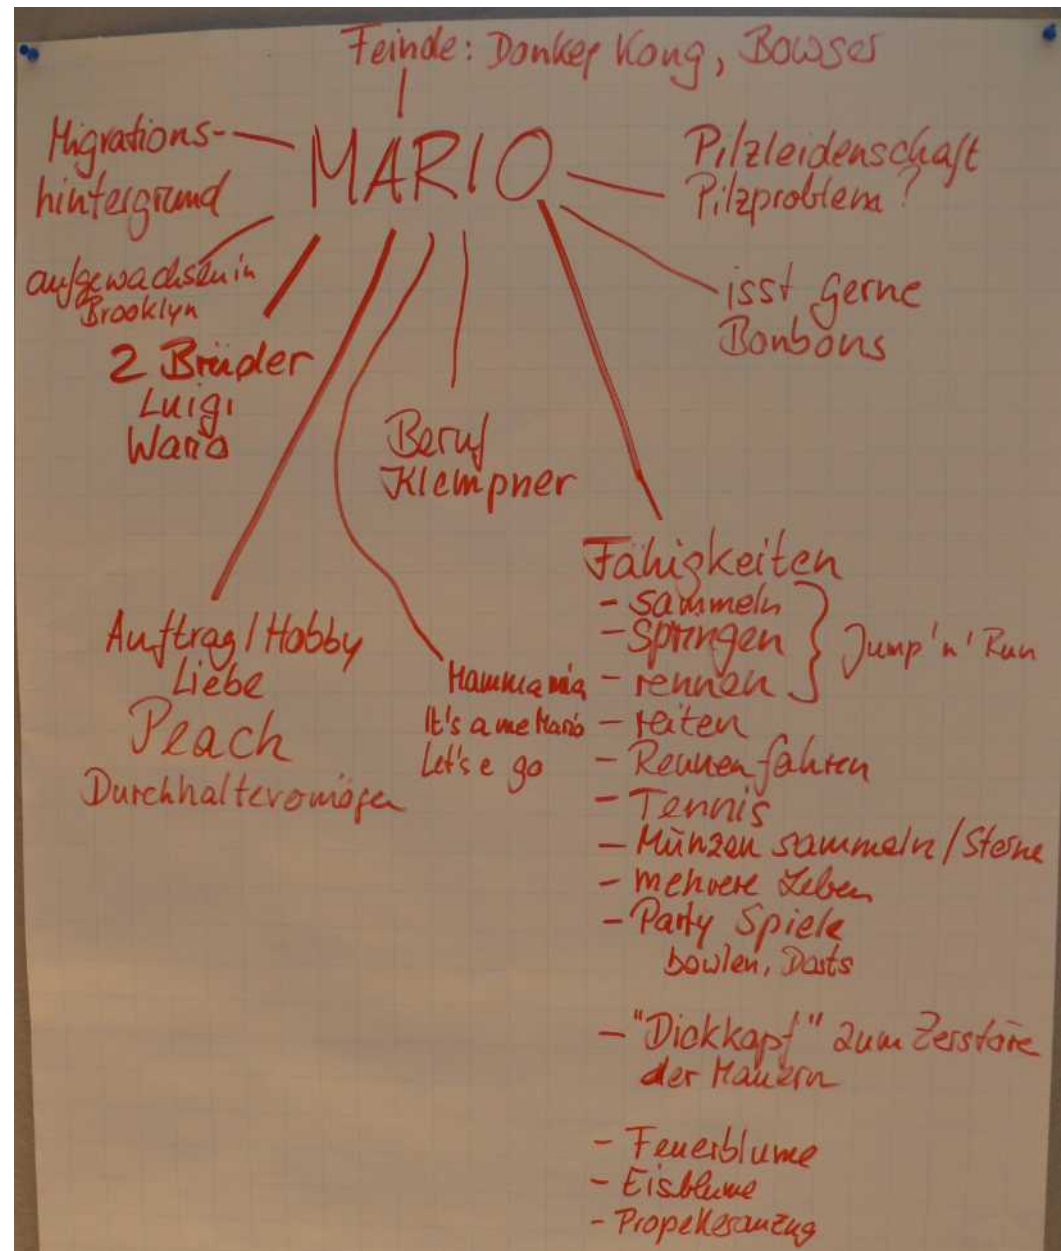 Feinde: Donkey Kong, Bowser
MARIO
Migrations-
hintergrund
aufgewachsen in
Brooklyn
2 Brüder
Luigi
Wario
Pilzleidenschaft
Pilzproblem?
isst gerne
Bonbons
Beruf
Klempner
Auftrag / Hobby
Liebe
Peach
Durchhaltevermögen
Mamma mia
It's a me Mario
Let's e go
Fähigkeiten
- sammeln
- springen
- rennen
Jump 'n' Run
- reiten
- Rennen fahren
- Tennis
- Münzen sammeln / Sterne
- mehrere Leben
- Party Spiele
bowlen, Darts
- "Dickkopf" zum Zerstöre
der Mauern
- Feuerblume
- Eisblume
- Propelleranzug